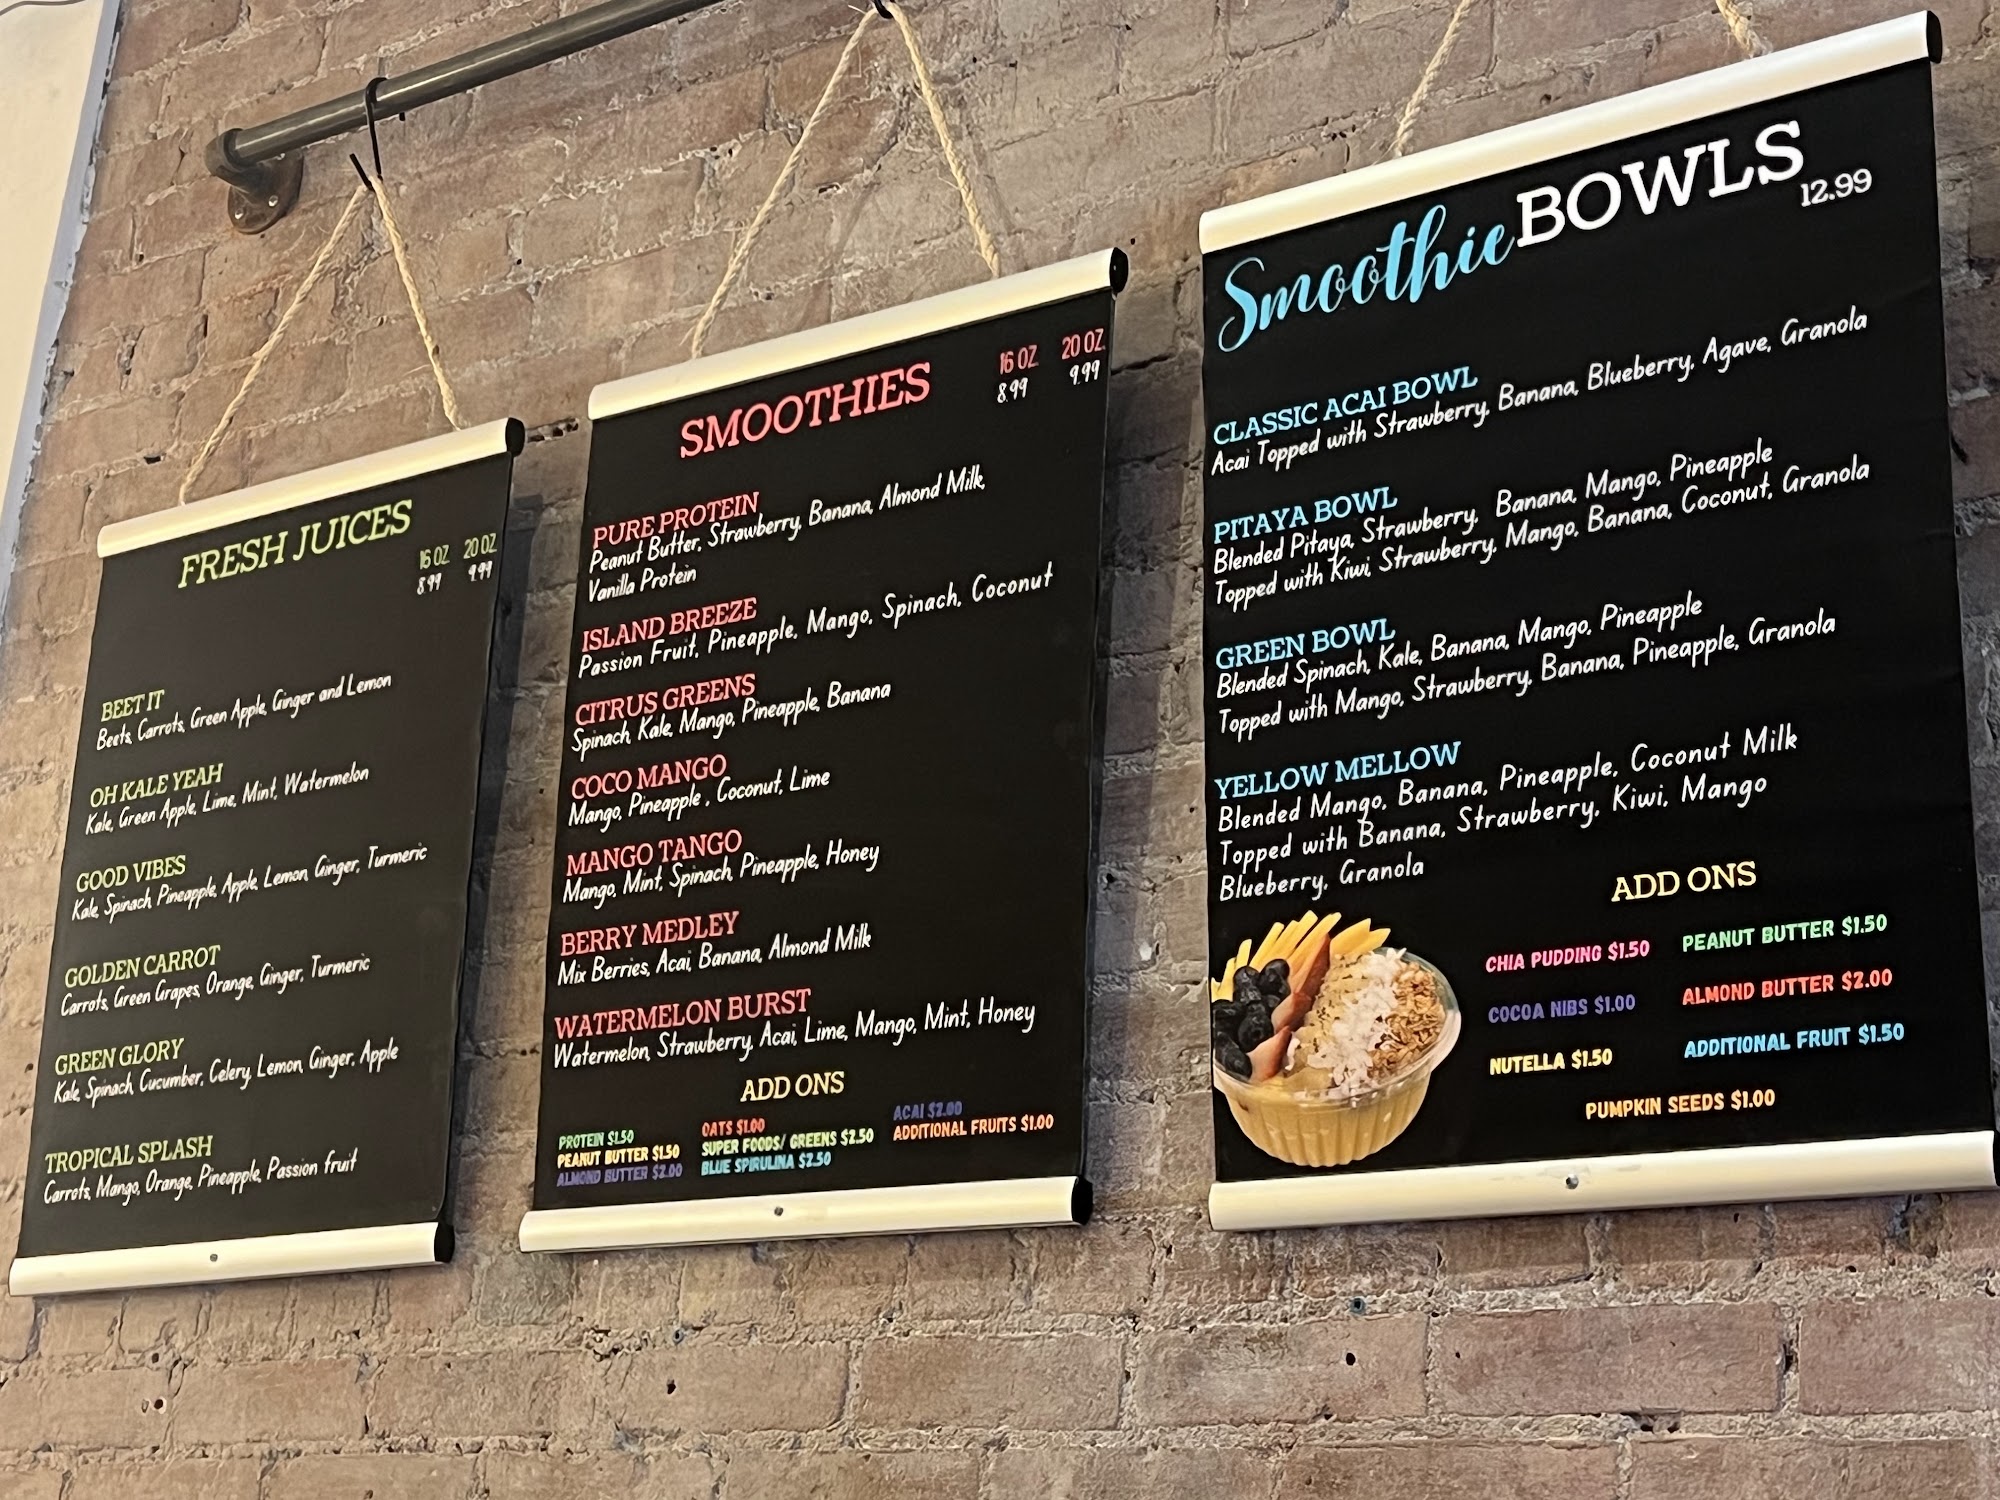 FRESH JUICES
16 OZ. 20 OZ.
8.99 9.99
BEET IT
Beets, Carrots, Green Apple, Ginger and Lemon
OH KALE YEAH
Kale, Green Apple, Lime, Mint, Watermelon
GOOD VIBES
Kale, Spinach, Pineapple, Apple, Lemon, Ginger, Turmeric
GOLDEN CARROT
Carrots, Green Grapes, Orange, Ginger, Turmeric
GREEN GLORY
Kale, Spinach, Cucumber, Celery, Lemon, Ginger, Apple
TROPICAL SPLASH
Carrots, Mango, Orange, Pineapple, Passion fruit
SMOOTHIES
16 OZ. 20 OZ.
8.99 9.99
PURE PROTEIN
Peanut Butter, Strawberry, Banana, Almond Milk,
Vanilla Protein
ISLAND BREEZE
Passion Fruit, Pineapple, Mango, Spinach, Coconut
CITRUS GREENS
Spinach, Kale, Mango, Pineapple, Banana
COCO MANGO
Mango, Pineapple , Coconut, Lime
MANGO TANGO
Mango, Mint, Spinach, Pineapple, Honey
BERRY MEDLEY
Mix Berries, Acai, Banana, Almond Milk
WATERMELON BURST
Watermelon, Strawberry, Acai, Lime, Mango, Mint, Honey
ADD ONS
PROTEIN $1.50
PEANUT BUTTER $1.50
ALMOND BUTTER $2.00
OATS $1.00
SUPER FOODS/ GREENS $2.50
BLUE SPIRULINA $2.50
ACAI $2.00
ADDITIONAL FRUITS $1.00
Smoothie BOWLS
12.99
CLASSIC ACAI BOWL
Acai Topped with Strawberry, Banana, Blueberry, Agave, Granola
PITAYA BOWL
Blended Pitaya, Strawberry, Banana, Mango, Pineapple
Topped with Kiwi, Strawberry, Mango, Banana, Coconut, Granola
GREEN BOWL
Blended Spinach, Kale, Banana, Mango, Pineapple
Topped with Mango, Strawberry, Banana, Pineapple, Granola
YELLOW MELLOW
Blended Mango, Banana, Pineapple, Coconut Milk
Topped with Banana, Strawberry, Kiwi, Mango
Blueberry, Granola
ADD ONS
CHIA PUDDING $1.50
PEANUT BUTTER $1.50
COCOA NIBS $1.00
ALMOND BUTTER $2.00
NUTELLA $1.50
ADDITIONAL FRUIT $1.50
PUMPKIN SEEDS $1.00